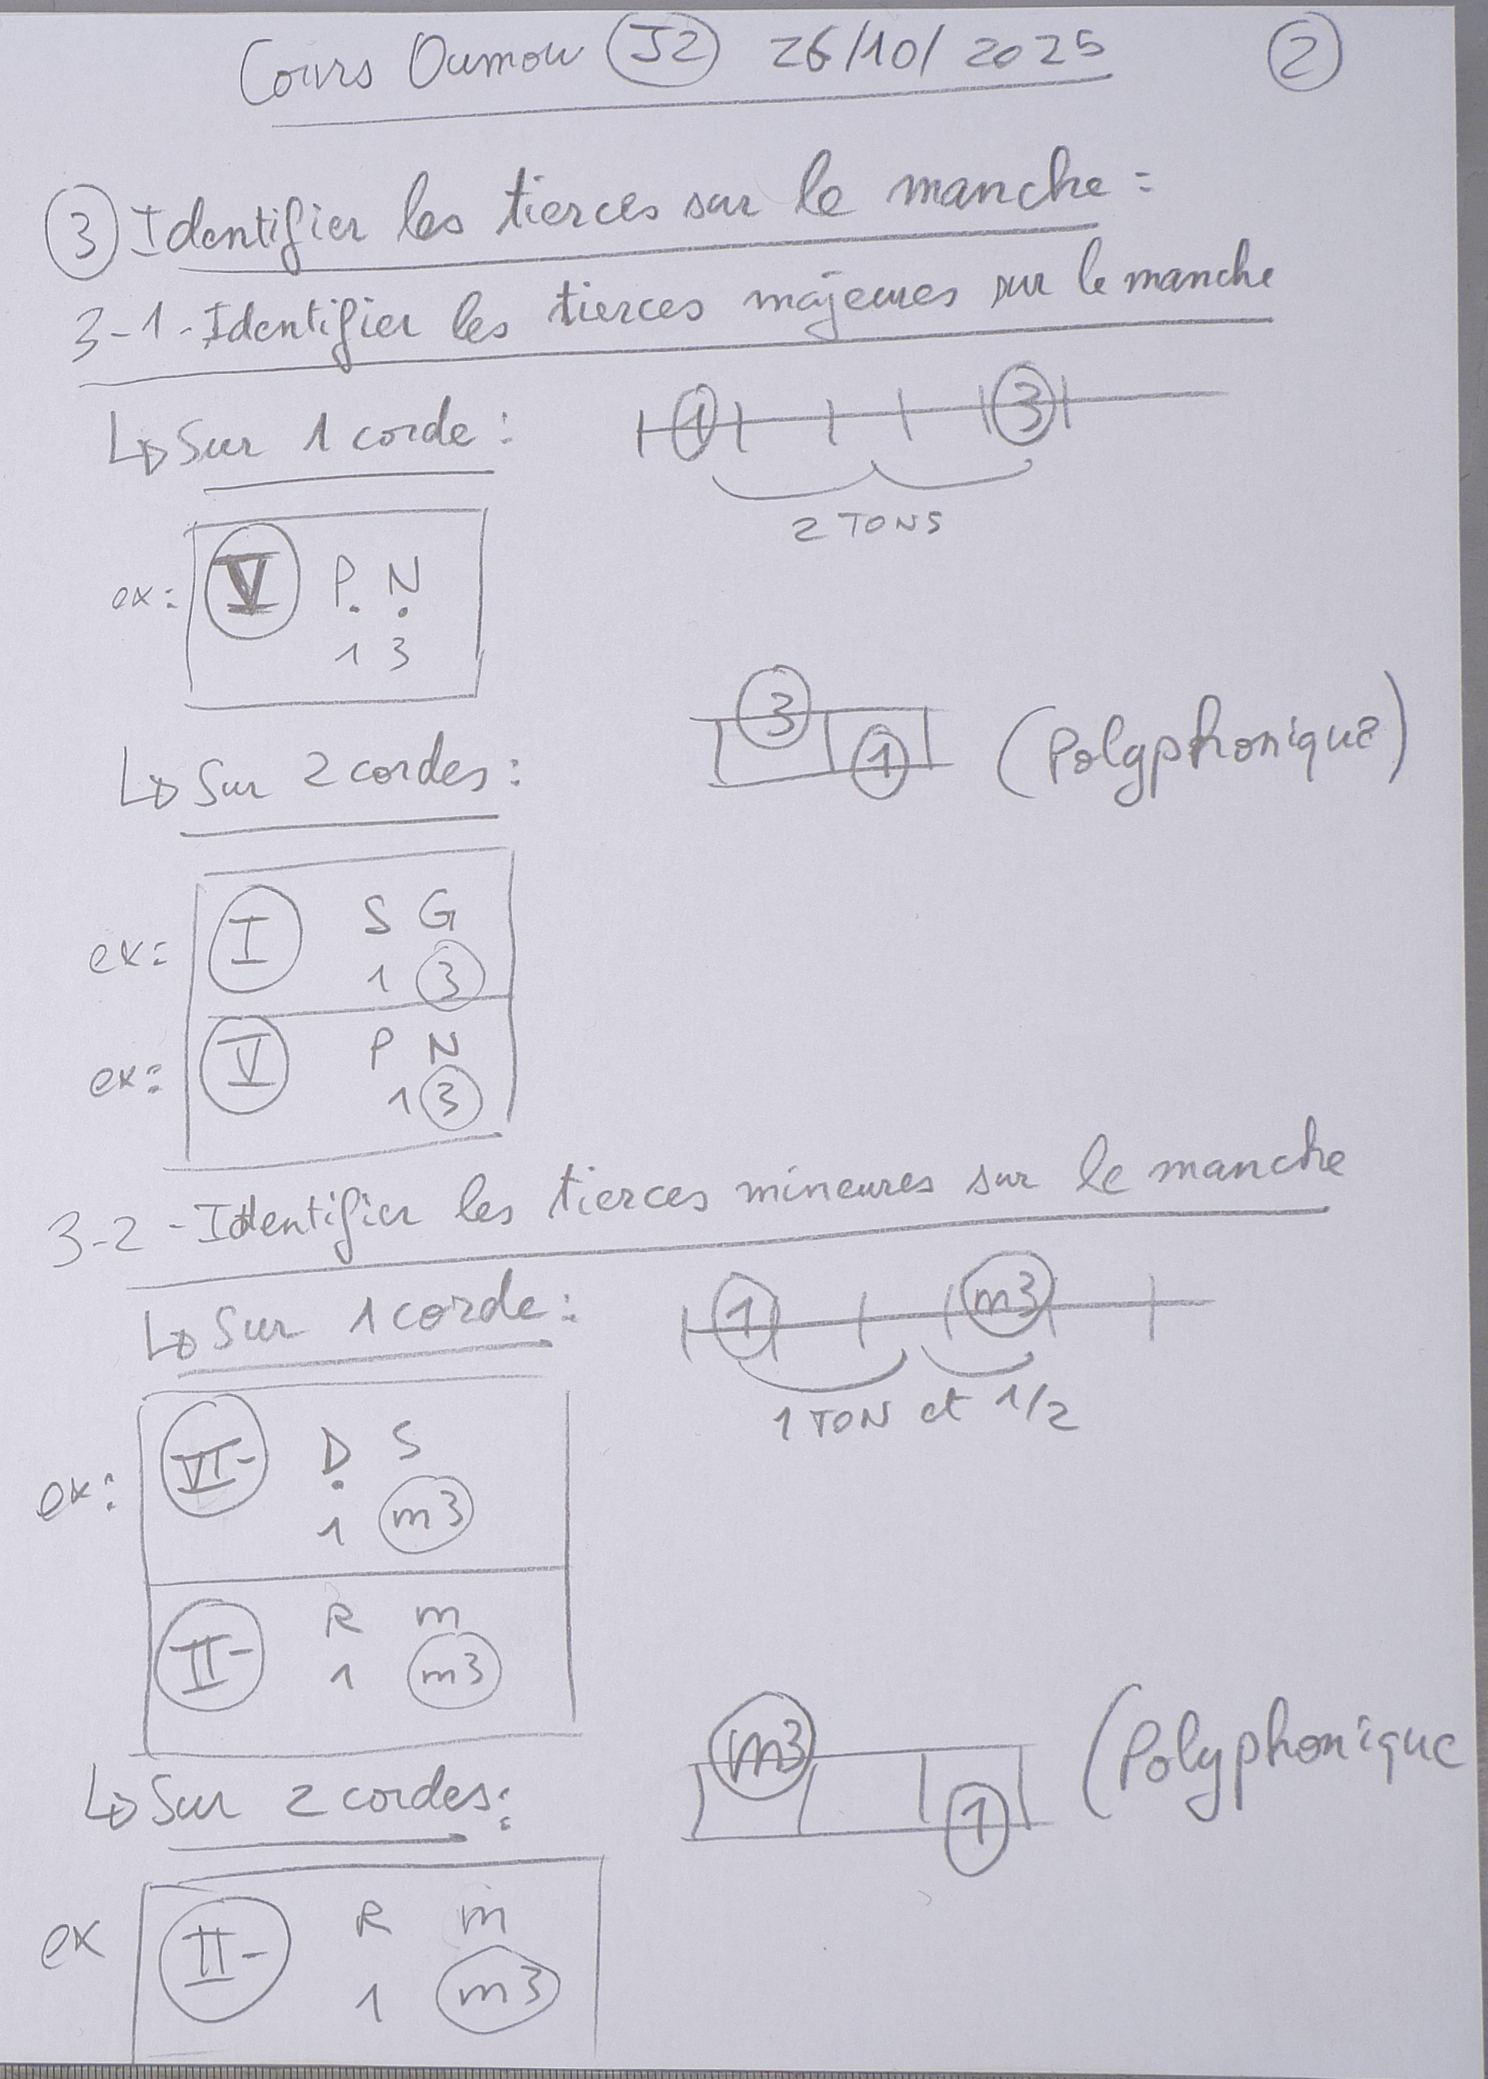 Cours Oumou J2 26/10/2025 2
3 Identifier les tierces sur le manche :
3-1-Identifier les tierces majeures sur le manche
↳ Sur 1 corde : 1 3
2 TONS
ex: V P. N.
1 3
↳ Sur 2 cordes : 3 1 (Polyphonique)
ex: I S G
1 3
ex: V P N
1 3
3-2-Identifier les tierces mineures sur le manche
↳ Sur 1 corde : 1 m3
1 TON et 1/2
ex: VI- Ḍ S
1 m3
II- R m
1 m3
↳ Sur 2 cordes : m3 1 (Polyphonique
ex II- R m
1 m3